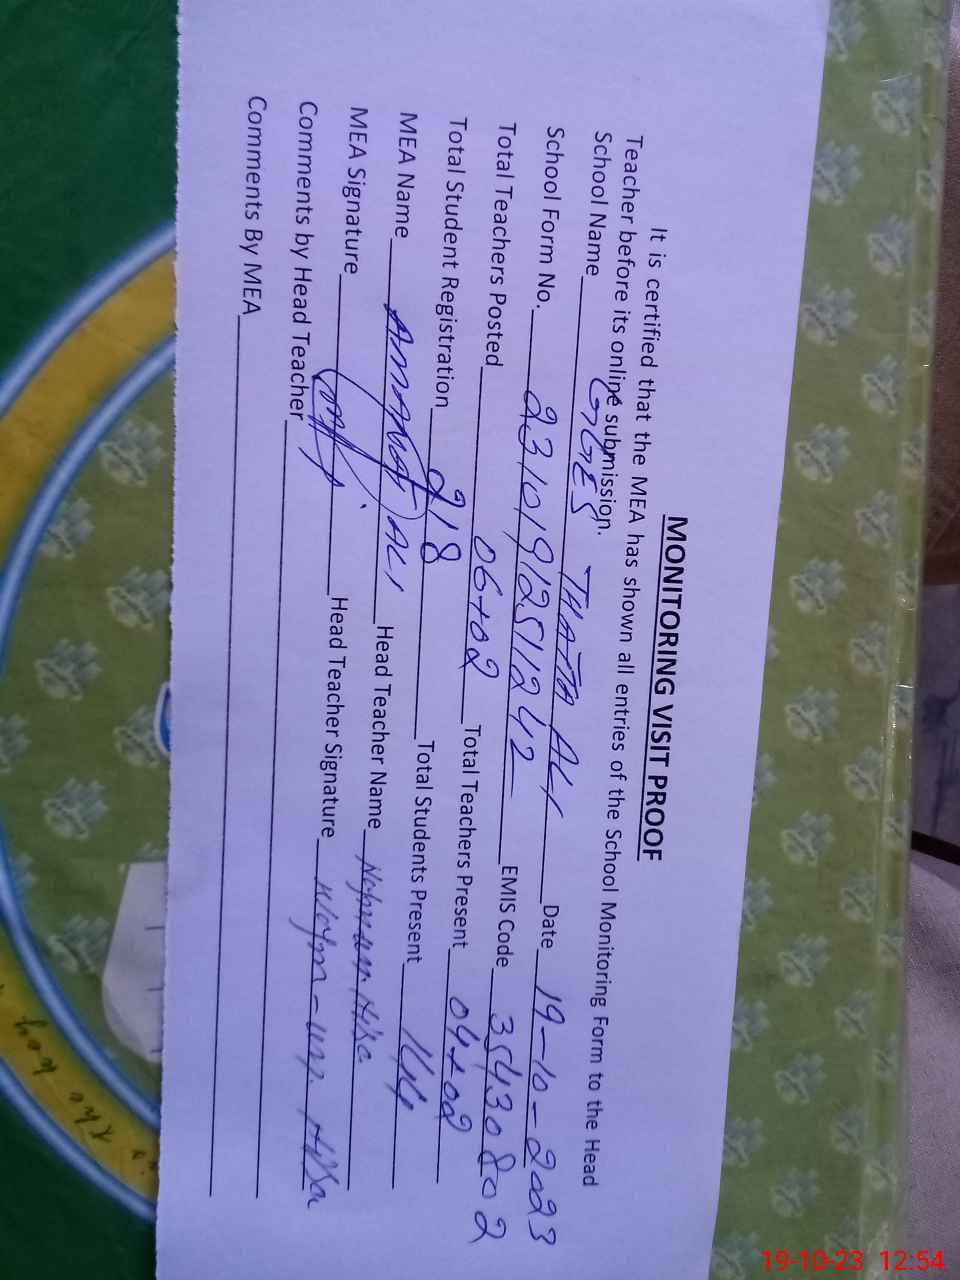 MONITORING VISIT PROOF
It is certified that the MEA has shown all entries of the School Monitoring Form to the Head
Teacher before its online submission.
School Name GGES THATTA ALI Date 19-10-2023
School Form No. 2310191251242 EMIS Code 35430802
Total Teachers Posted 06+02 Total Teachers Present 04+02
Total Student Registration 218 Total Students Present 144
MEA Name AMANAT ALI Head Teacher Name
MEA Signature Head Teacher Signature
Comments by Head Teacher
Comments By MEA
the key
19-10-23 12:54